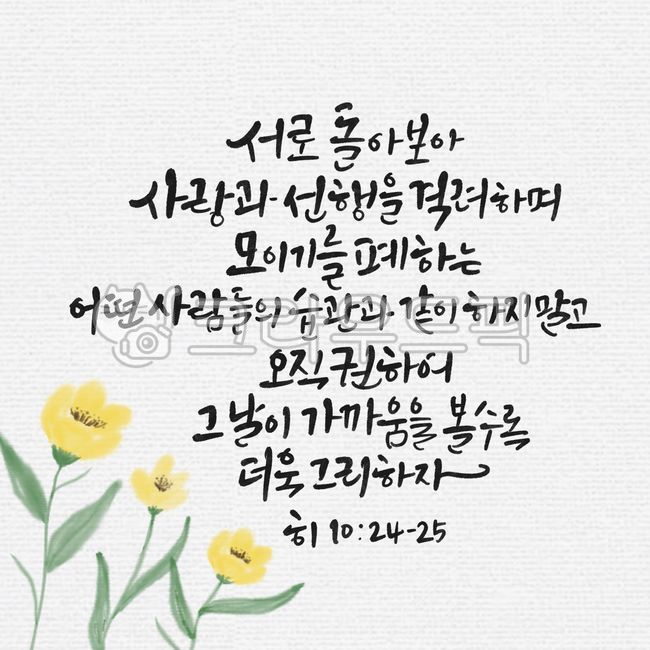 서로 돌아보아
사랑과 선행을 격려하며
모이기를 폐하는
어떤 사람들의 습관과 같이 하지말고
크라우드픽
오직 권하여
그날이 가까움을 볼수록
더욱 그리하자
히 10:24-25